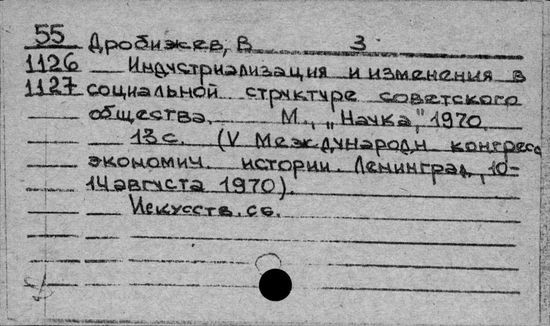 55 Дробижев, В 3
1126 Индустриализация и изменения в
1127 социальной структуре советского
общества. М., „Наука," 1970.
13 с. (V Международн конгресс
экономич. истории. Ленинград, 10-
14 августа 1970).
Искусств. сб.